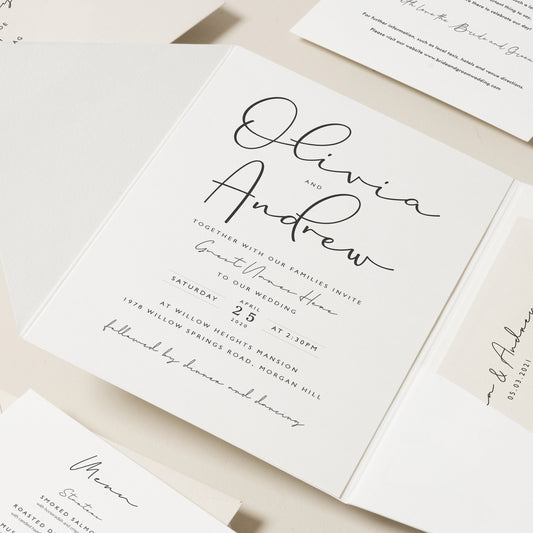 Olivia
AND
Andrew
TOGETHER WITH OUR FAMILIES INVITE
Guest Names Here
TO OUR WEDDING
SATURDAY
APRIL
25
2020
AT 2:30PM
AT WILLOW HEIGHTS MANSION
1978 WILLOW SPRINGS ROAD, MORGAN HILL
followed by dinner and dancing
For further information, such as local taxis, hotels and venue directions,
Please visit our website www.brideandgroomwedding.com
& Andrew
05.03.2021
Menu
Starters
SMOKED SALMO
ROASTED D
MUS